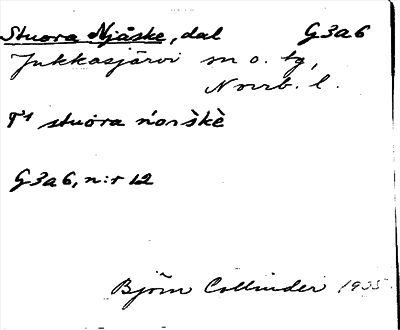 Stuora Njåske, dal G3a6
Jukkasjärvi sn o. tg,
Norrb. l.
T1 stuora ńor̀škè
G3a6, n:r 12
Björn Collinder 1935